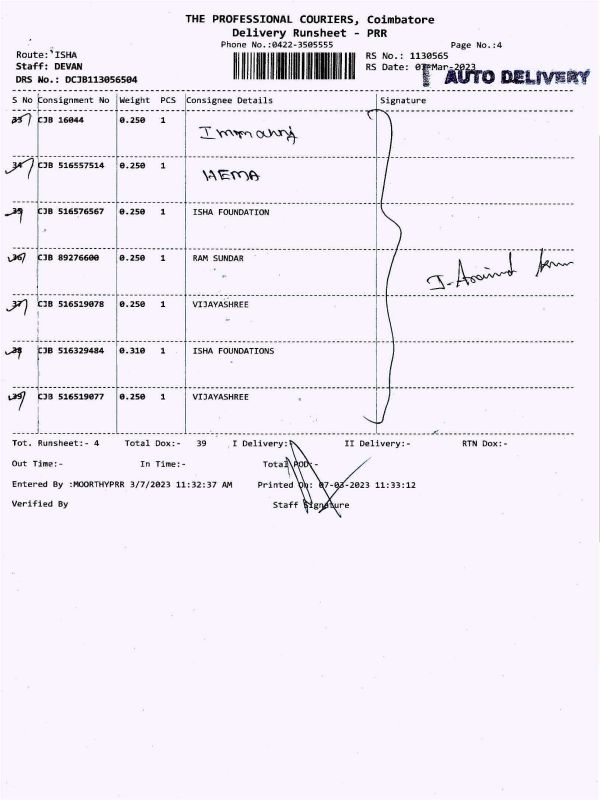 THE PROFESSIONAL COURIERS, Coimbatore
Delivery Runsheet - PRR
Phone No.:0422-3505555 Page No.:4
Route: ISHA RS No.: 1130565
Staff: DEVAN RS Date: 07-Mar-2023
DRS No.: DCJB113056504 AUTO DELIVERY
S No Consignment No Weight PCS Consignee Details Signature
33 CJB 16044 0.250 1
34 CJB 516557514 0.250 1 HEMA
35 CJB 516576567 0.250 1 ISHA FOUNDATION
36 CJB 89276600 0.250 1 RAM SUNDAR
37 CJB 516519078 0.250 1 VIJAYASHREE
38 CJB 516329484 0.310 1 ISHA FOUNDATIONS
39 CJB 516519077 0.250 1 VIJAYASHREE
Tot. Runsheet:- 4 Total Dox:- 39 I Delivery:- II Delivery:- RTN Dox:-
Out Time:- In Time:- Total POD:-
Entered By :MOORTHYPRR 3/7/2023 11:32:37 AM Printed On: 07-03-2023 11:33:12
Verified By Staff Signature